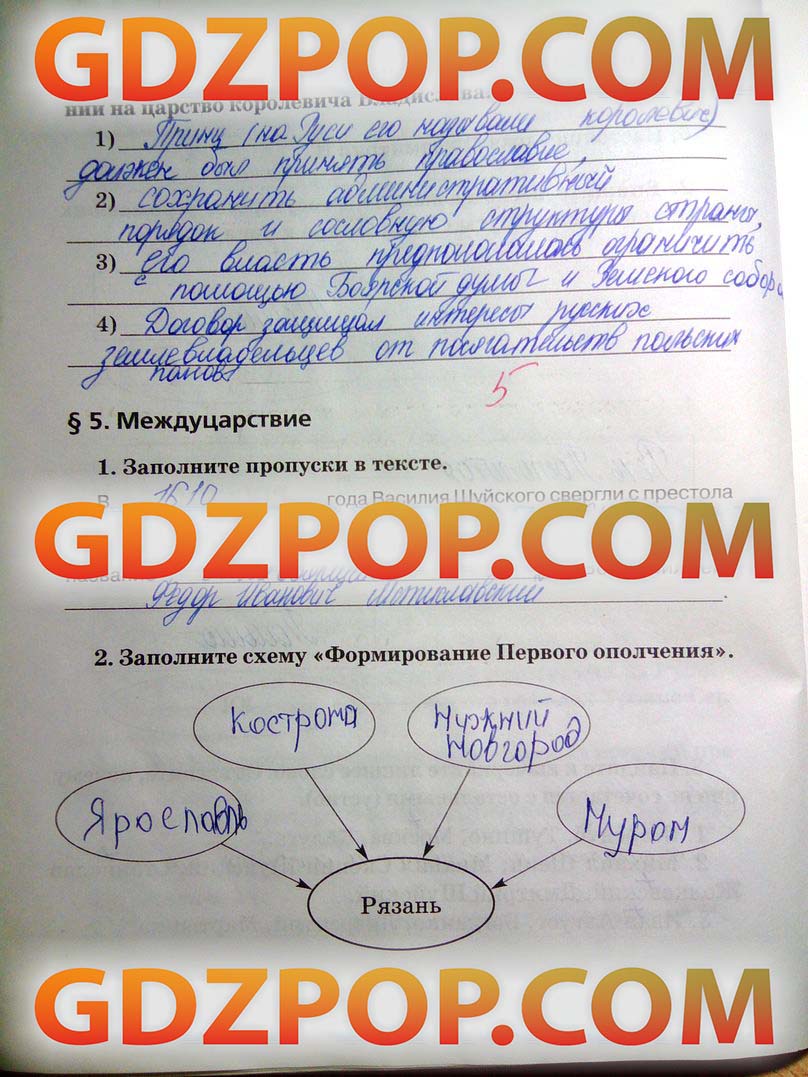 GDZPOP.COM
нии на царство королевича Владислава.
1) Принц (на Руси его называли королевич)
должен был принять православие,
2) сохранить административный
порядок и сословную структуры страны,
3) его власть предполагалось ограничить
с помощью Боярской думы и Земского собора
4) Договор защищал интересы русских
землевладельцев от посягательств польских
панов
5
§ 5. Междуцарствие
1. Заполните пропуски в тексте.
В 1610 года Василия Шуйского свергли с престола
GDZPOP.COM
Фёдор Иванович Мстиславский.
2. Заполните схему «Формирование Первого ополчения».
Кострома
Нижний
Новгород
Ярославль
Муром
Рязань
GDZPOP.COM